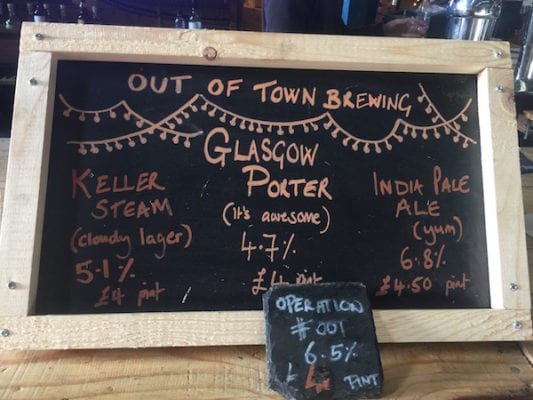 OUT OF TOWN BREWING
KELLER
STEAM
(cloudy lager)
5.1%
£4 pint
GLASGOW
PORTER
(it's awesome)
4.7%
£4 pint
INDIA PALE
ALE
(yum)
6.8%
£4.50 pint
OPERATION
#001
6.5%
£4 PINT